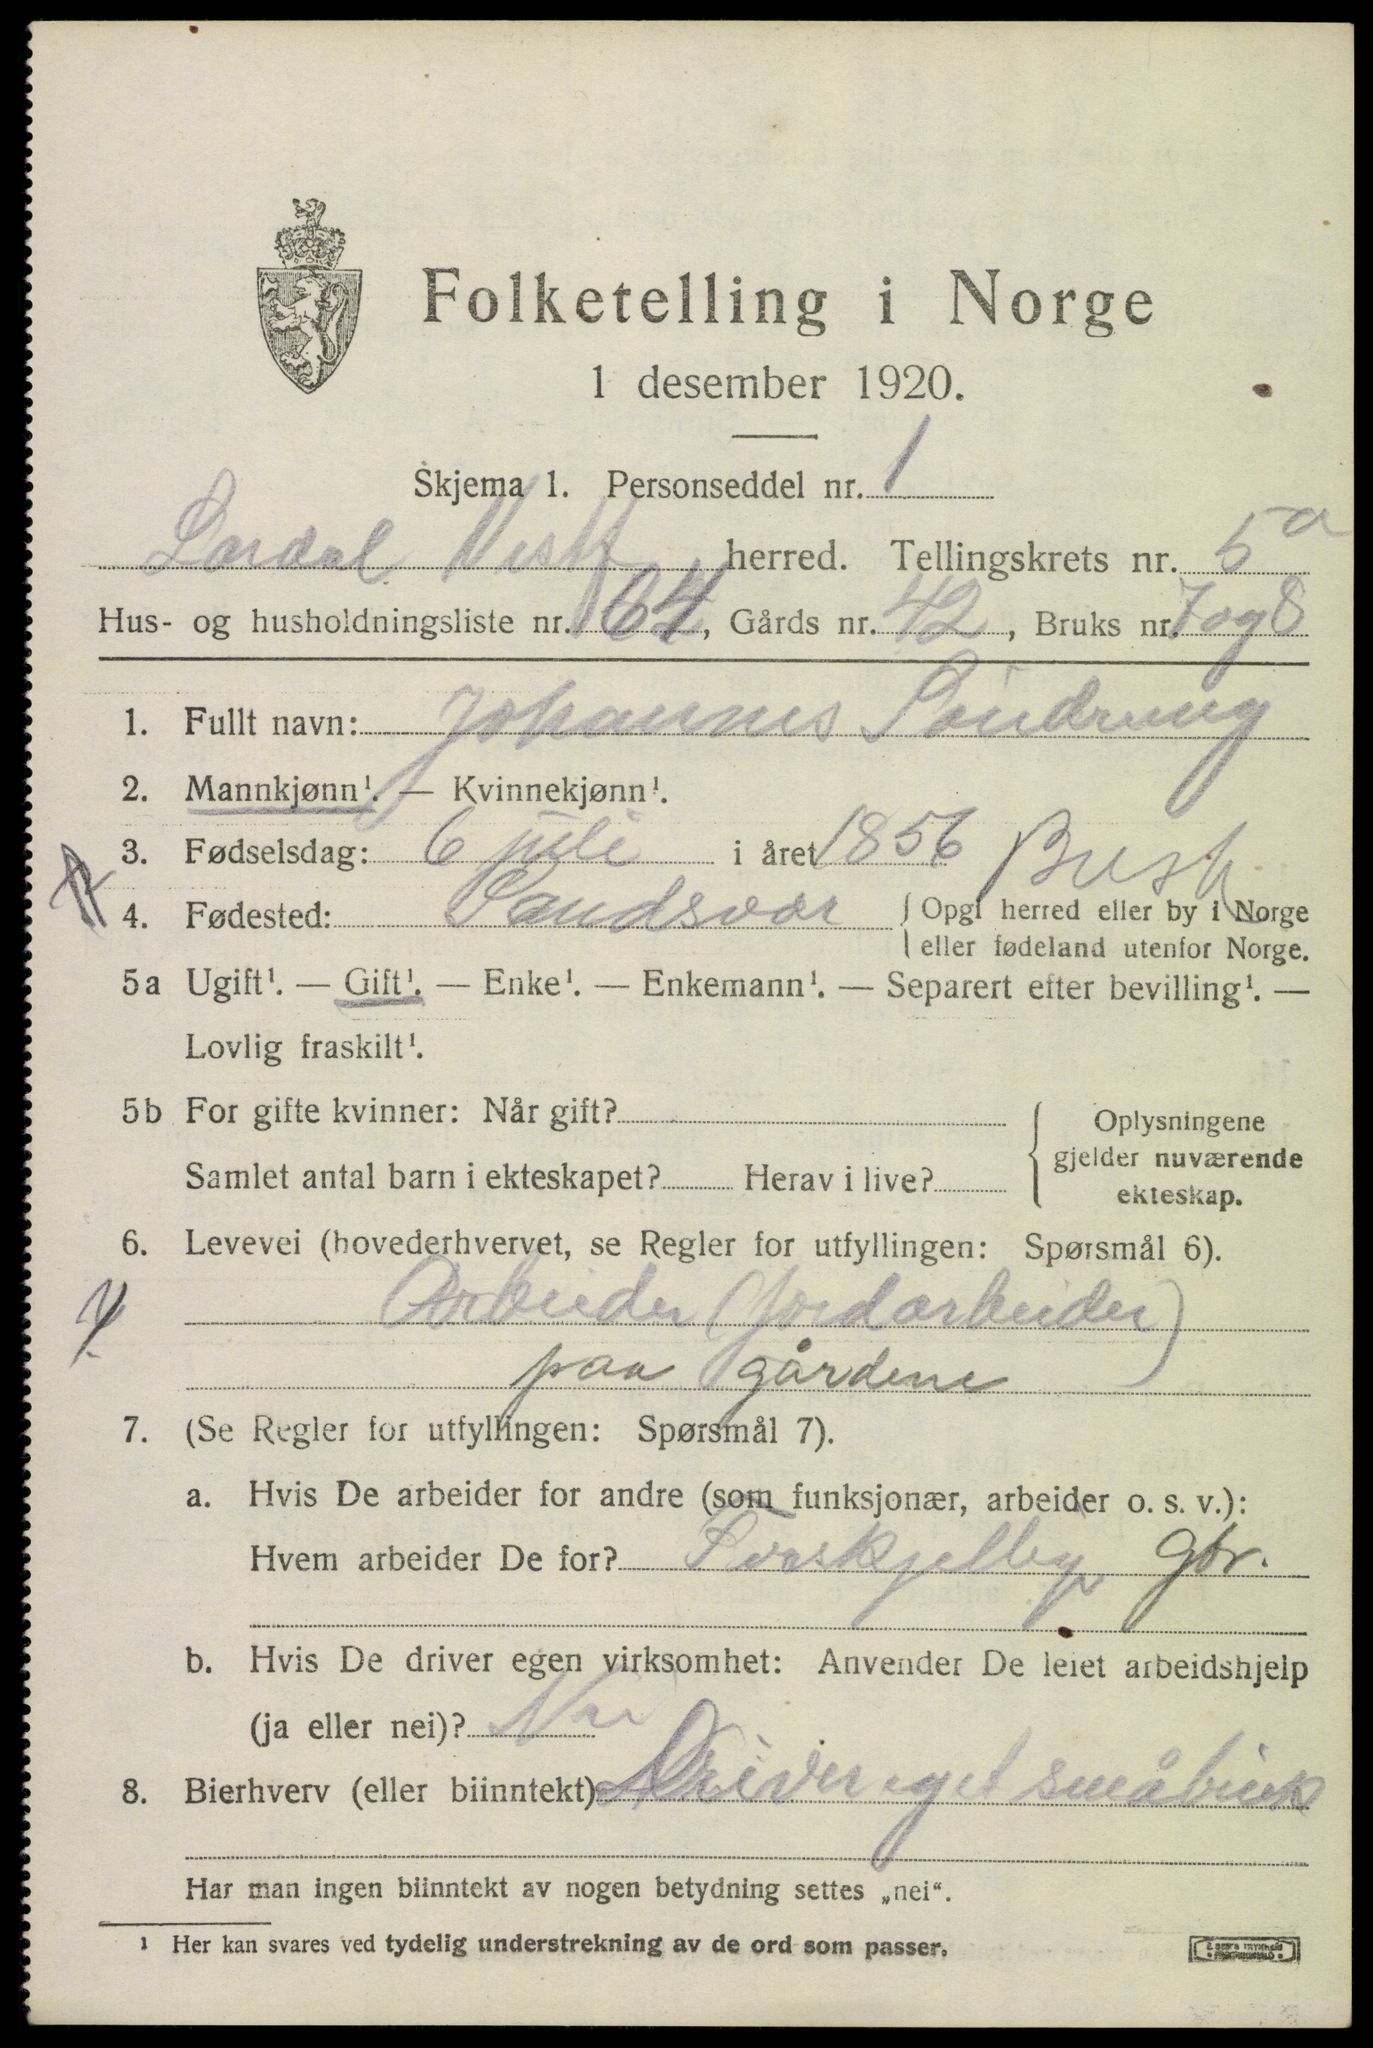 Folketelling i Norge
1 desember 1920.
Skjema 1. Personseddel nr. 1
Lardal Vestf herred. Tellingskrets nr. 5a
Hus- og husholdningsliste nr. 64, Gårds nr. 42, Bruks nr. 7 og 8
1. Fullt navn: Johannes
2. Mannkjønn¹. — Kvinnekjønn¹.
3. Fødselsdag: 6 juli i året 1856
Busk
4. Fødested: Sandsvær { Opgi herred eller by i Norge
eller fødeland utenfor Norge.
5a Ugift¹. — Gift¹. — Enke¹. — Enkemann¹. — Separert efter bevilling¹. —
Lovlig fraskilt¹.
5b For gifte kvinner: Når gift?
Samlet antal barn i ekteskapet? Herav i live?
{ Oplysningene
gjelder nuværende
ekteskap.
6. Levevei (hovederhvervet, se Regler for utfyllingen: Spørsmål 6).
Arbeider (jordarbeider)
paa gårdene
7. (Se Regler for utfyllingen: Spørsmål 7).
a. Hvis De arbeider for andre (som funksjonær, arbeider o. s. v.):
Hvem arbeider De for? gbr.
b. Hvis De driver egen virksomhet: Anvender De leiet arbeidshjelp
(ja eller nei)? Nei
8. Bierhverv (eller biinntekt) Driver eget småbruk
Har man ingen biinntekt av nogen betydning settes „nei“.
¹ Her kan svares ved tydelig understrekning av de ord som passer.